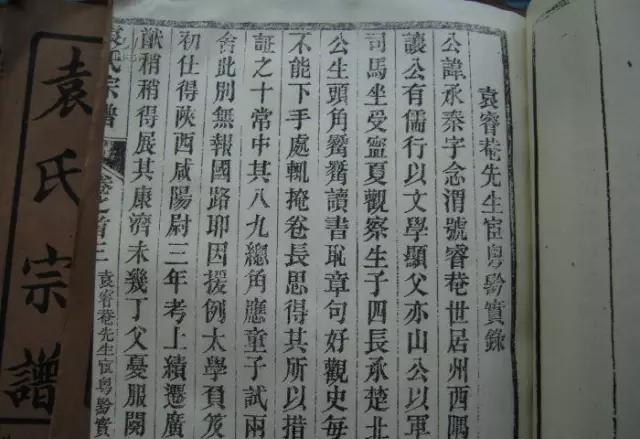 袁睿菴先生宦粵黔實錄
公諱承泰字念渭號睿菴世居州西隅
讓公有儒行以文學顯父亦山公以軍
司馬坐受寧夏觀察生子四長承楚北
公生頭角嶄嶄讀書恥章句好觀史每
不能下手處輒掩卷長思得其所以措
証之十常中其八九總角應童子試兩
舍此別無報國路耶因援例太學負笈
初仕得陝西咸陽尉三年考上績遷廣
猷稍稍得展其康濟未幾丁父憂服闋
袁氏宗譜
卷之首三
袁睿菴先生宦粵黔實
袁氏宗譜